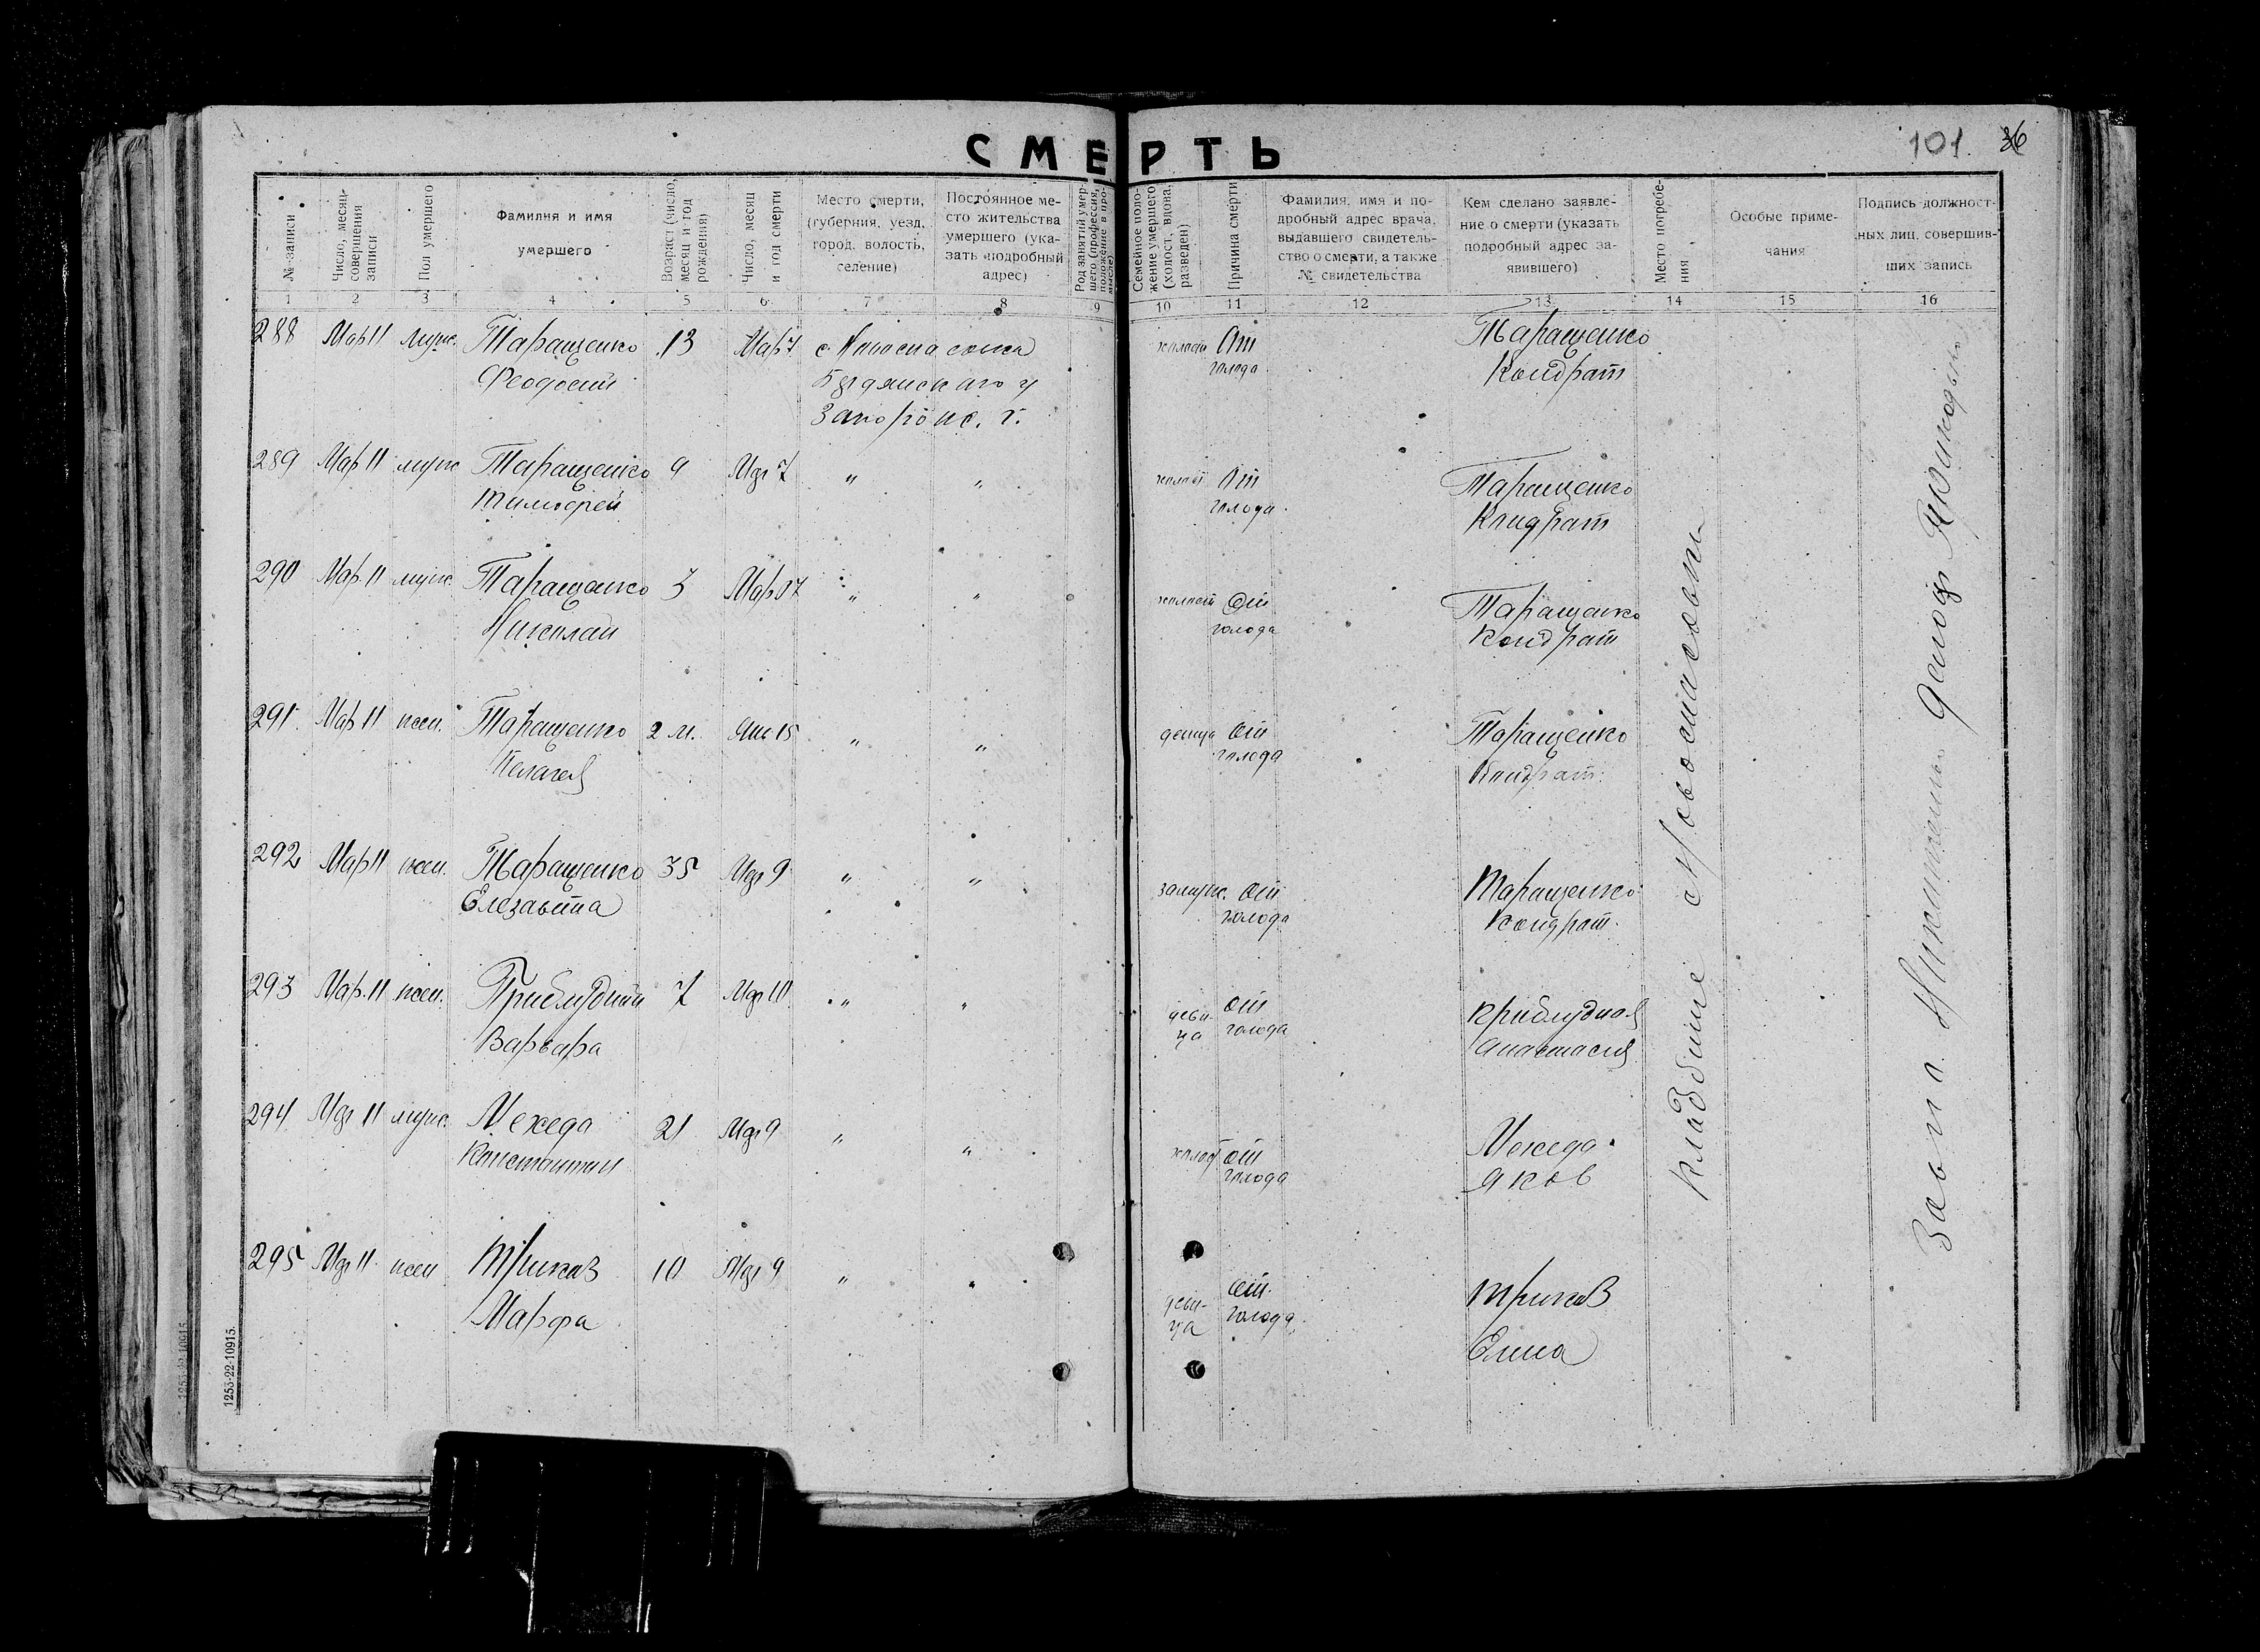 СМЕРТЬ
101. 36
№ записи
Число, месяц совершения записи
Пол умершего
Фамилия и имя
умершего
Возраст (число, месяц и год рождения)
Число, месяц и год смерти
Место смерти,
(губерния, уезд,
город, волость,
селение)
Постоянное ме-
сто жительства
умершего (ука-
зать подробный
адрес)
Род занятий умер-
шего (профессия,
положение в про-
мысле)
Семейное поло-
жение умершего
(холост, вдова,
разведен)
Причина смерти
Фамилия, имя и по-
дробный адрес врача,
выдавшего свидетель-
ство о смерти, а также
№ свидетельства
Кем сделано заявле-
ние о смерти (указать
подробный адрес за-
явившего)
Место погребе-
ния
Особые приме-
чания
Подпись должност-
ных лиц, совершив-
ших запись
1 2 3 4 5 6 7 8 9 10 11 12 13 14 15 16
288 Мар 11 муж. Таращенко 13 Мар 7 От Таращенко
Феодосий голода Кондрат
Запорож. г.
289 Мар 11 муж Таращенко 9 Мар 7 " " От Таращенко
Тимофей голода Кондрат
290 Мар. 11 муж. Таращенко 3 Мар 7 " " От Таращенко
Николай голода Кондрат
291 Мар 11 жен. Таращенко 2 м. Янв 15 " " от Таращенко
Пелагея голода Кондрат
292 Мар 11 жен. Таращенко 35 Мар 9 " " замуж. от Таращенко
Елезавта голода Кондрат
293 Мар. 11 жен. 7 Мар 10 " " деви- от Приблудная
Варвара ца голода Анастасия
294 Мар 11 муж. Межеда 21 Мар 9 " " от Межеда
Константин голода Яков
295 Мар 11 жен 10 Мар 9 " " деви- от
Марфа ца голода
кладбище с Новоспасовки
1253-22-10915.